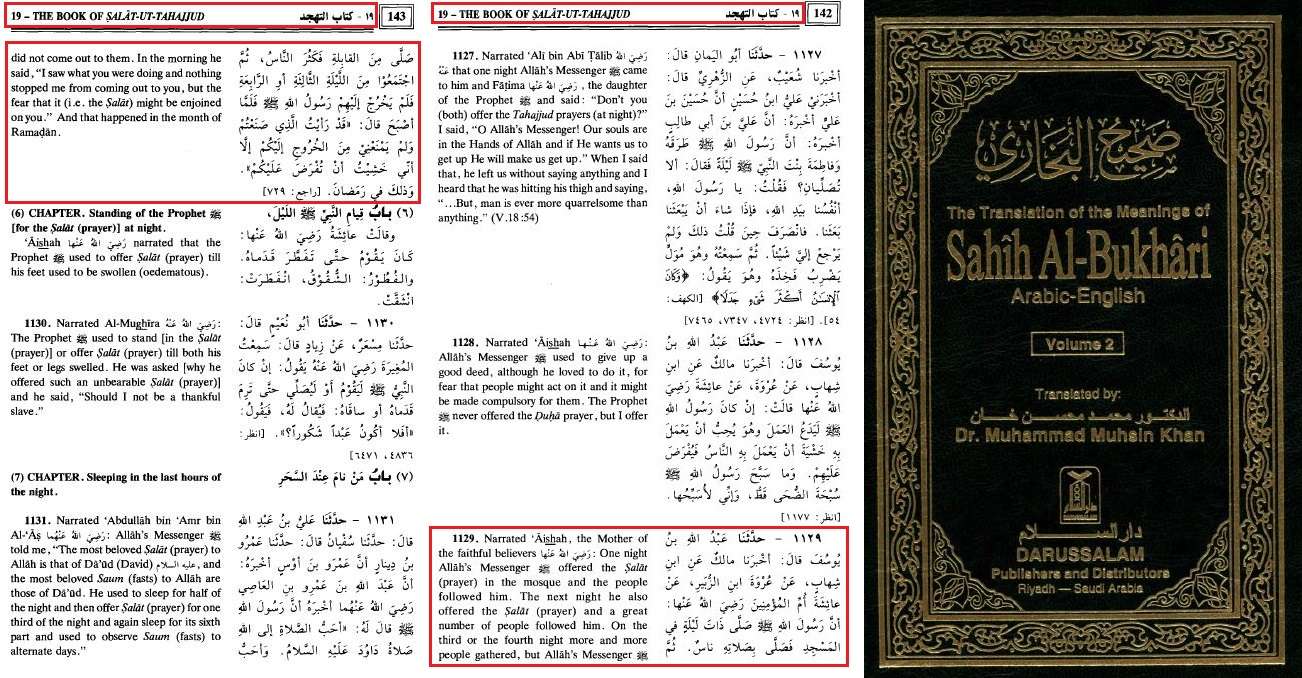 19 – THE BOOK OF ṢALĀT-UT-TAHAJJUD
١٩ - كتاب التهجد
143
did not come out to them. In the morning he
said, “I saw what you were doing and nothing
stopped me from coming out to you, but the
fear that it (i.e. the Ṣalāt) might be enjoined
on you.” And that happened in the month of
Ramaḍān.
صَلَّى مِنَ القابِلةِ فَكَثُرَ النَّاسُ، ثُمَّ
اجتَمَعُوا مِنَ اللَّيْلَةِ الثَّالِثةِ أوِ الرَّابِعَةِ
فَلَمْ يَخْرُجْ إلَيْهِمْ رَسُولُ اللهِ ﷺ فَلَمَّا
أصْبَحَ قالَ: «قَدْ رَأيْتُ الَّذِي صَنَعْتُمْ
وَلَم يَمْنَعْنِي مِنَ الخُرُوجِ إلَيْكُمْ إلَّا
أنِّي خَشِيْتُ أنْ تُفْرَضَ عَلَيْكُمْ».
وَذلكَ في رَمَضانَ. [راجع: ٧٢٩]
(6) CHAPTER. Standing of the Prophet ﷺ
[for the Ṣalāt (prayer)] at night.
‘Āishah رَضِيَ اللهُ عَنْها narrated that the
Prophet ﷺ used to offer Ṣalāt (prayer) till
his feet used to be swollen (oedematous).
(٦) بابُ قِيامِ النَّبِيِّ ﷺ اللَّيْلَ،
وقالَتْ عائِشَةُ رَضِيَ اللهُ عَنْها:
كَانَ يَقُومُ حتَّى تَفَطَّرَ قَدَماهُ.
والفُطُوْرُ: الشُّقُوْقُ، انْفَطَرَتْ:
انْشَقَّتْ.
1130. Narrated Al-Mughīra رَضِيَ اللهُ عَنْهُ:
The Prophet ﷺ used to stand [in the Ṣalāt
(prayer)] or offer Ṣalāt (prayer) till both his
feet or legs swelled. He was asked [why he
offered such an unbearable Ṣalāt (prayer)]
and he said, “Should I not be a thankful
slave.”
١١٣٠ - حدَّثنا أبو نُعَيْمٍ قالَ:
حدَّثنا مِسْعَرٌ، عَنْ زِيادٍ قالَ: سَمِعْتُ
المُغِيرَةَ رَضِيَ اللهُ عَنْهُ يَقُولُ: إنْ كانَ
النَّبِيُّ ﷺ لَيَقُومُ أَوْ لَيُصَلِّي حتَّى تَرِمَ
قَدَماهُ أو ساقَاهُ: فَيُقالُ لَهُ، فَيَقُولُ:
«أفَلا أكُونُ عَبْداً شَكُوراً؟». [انظر:
٤٨٣٦، ٦٤٧١]
(7) CHAPTER. Sleeping in the last hours of
the night.
(٧) بابُ مَنْ نامَ عِنْدَ السَّحَرِ
1131. Narrated ‘Abdullāh bin ‘Amr bin
Al-‘Āṣ رَضِيَ اللهُ عَنْهُما: Allāh’s Messenger ﷺ
told me, “The most beloved Ṣalāt (prayer) to
Allāh is that of Dā’ūd (David) عليه السلام, and
the most beloved Saum (fasts) to Allāh are
those of Dā’ūd. He used to sleep for half of
the night and then offer Ṣalāt (prayer) for one
third of the night and again sleep for its sixth
part and used to observe Saum (fasts) to
alternate days.”
١١٣١ - حدَّثنا عَليُّ بنُ عَبْدِ اللهِ
قالَ: حدَّثنا سُفْيانُ قالَ: حدَّثنا عَمْرُو
بْنُ دِينارٍ أنَّ عَمْرَو بْنَ أوْسٍ أخْبَرَهُ:
أنَّ عَبْدَ اللهِ بْنَ عَمْرِو بنِ العَاصِي
رَضِيَ اللهُ عَنْهُما أخْبَرَهُ أنَّ رَسُولَ اللهِ
ﷺ قالَ لَهُ: «أحَبُّ الصَّلاةِ إلى اللهِ
صَلاةُ دَاوُدَ عَلَيْهِ السَّلامُ. وَأحَبُّ
19 – THE BOOK OF ṢALĀT-UT-TAHAJJUD
١٩ - كتاب التهجد
142
1127. Narrated ‘Alī bin Abī Ṭālib رَضِيَ اللهُ
عَنْهُ that one night Allāh’s Messenger ﷺ came
to him and Fāṭima رَضِيَ اللهُ عَنْها, the daughter
of the Prophet ﷺ and said: “Don’t you
(both) offer the Tahajjud prayers (at night)?”
I said, “O Allāh’s Messenger! Our souls are
in the Hands of Allāh and if He wants us to
get up He will make us get up.” When I said
that, he left us without saying anything and I
heard that he was hitting his thigh and saying,
“…But, man is ever more quarrelsome than
anything.” (V.18:54)
١١٢٧ - حدَّثنا أبُو اليَمانِ قالَ:
أخْبرَنا شُعَيْبٌ، عَنِ الزُّهْرِيِّ قالَ:
أخْبَرَنِي عَليُّ ابنُ حُسَيْنٍ أنَّ حُسَيْنَ بنَ
عَليٍّ أخْبَرَهُ: أنَّ عَليَّ بنَ أبي طالِبٍ
أخْبَرَهُ: أنَّ رَسُولَ اللهِ ﷺ طَرَقَهُ
وَفاطِمَةَ بِنْتَ النَّبيِّ ﷺ لَيْلَةً فَقالَ: ألا
تُصَلِّيانِ؟ فَقُلْتُ: يا رَسُولَ اللهِ،
أنْفُسُنا بيَدِ اللهِ، فإذَا شاءَ أنْ يَبْعَثَنا
بَعَثَنا. فانْصَرَفَ حِينَ قُلْتُ ذلكَ وَلمْ
يَرْجِعْ إليَّ شَيْئاً. ثُمَّ سَمِعْتُهُ وهوَ مُوَلٍّ
يَضْرِبُ فَخِذَهُ وهوَ يَقُولُ: ﴿وَكَانَ
الْإِنسَٰنُ أَكْثَرَ شَيْءٍ جَدَلًا﴾ [الكهف:
٥٤]. [انظر: ٤٧٢٤، ٧٣٤٧، ٧٤٦٥]
1128. Narrated ‘Āishah رَضِيَ اللهُ عَنْها:
Allāh’s Messenger ﷺ used to give up a
good deed, although he loved to do it, for
fear that people might act on it and it might
be made compulsory for them. The Prophet
ﷺ never offered the Ḍuḥā prayer, but I offer
it.
١١٢٨ - حدَّثَنَا عَبْدُ اللهِ بنُ
يوسُفَ قالَ: أخْبَرَنا مالكٌ عَنِ ابنِ
شِهابٍ، عَنْ عُرْوَةَ، عَنْ عائِشَةَ رَضِيَ
اللهُ عَنْها قالَتْ: إنْ كانَ رَسُولُ اللهِ
ﷺ لَيَدَعُ العَمَلَ وهوَ يُحِبُّ أنْ يَعْمَلَ
بهِ خَشْيَةَ أنْ يَعْمَلَ بِهِ النَّاسُ فَيُفْرَضَ
عَلَيْهِمْ. وَما سَبَّحَ رَسُولُ اللهِ ﷺ
سُبْحَةَ الضُّحَى قَطُّ، وَإنِّي لأُسَبِّحُها.
[انظر: ١١٧٧]
1129. Narrated ‘Āishah, the Mother of
the faithful believers رَضِيَ اللهُ عَنْها: One night
Allāh’s Messenger ﷺ offered the Ṣalāt
(prayer) in the mosque and the people
followed him. The next night he also
offered the Ṣalāt (prayer) and a great
number of people followed him. On the
third or the fourth night more and more
people gathered, but Allāh’s Messenger ﷺ
١١٢٩ - حدَّثَنَا عَبْدُ اللهِ بنُ
يُوسُفَ قالَ: أخْبَرَنا مالكٌ عَنِ ابنِ
شِهابٍ، عَنْ عُرْوَةَ ابنِ الزُّبَيْرِ، عَنْ
عائِشَةَ أُمِّ المُؤْمِنِينَ رَضِيَ اللهُ عَنْها:
أنَّ رَسُولَ اللهِ ﷺ صَلَّى ذَاتَ لَيْلَةٍ في
المَسْجِدِ فَصَلَّى بِصَلاتِهِ ناسٌ. ثُمَّ
صحيح البخاري
The Translation of the Meanings of
Sahîh Al-Bukhâri
Arabic-English
Volume 2
Translated by:
الدكتور محمد محسن خان
Dr. Muhammad Muhsin Khan
دار السلام
DARUSSALAM
Publishers and Distributors
Riyadh – Saudi Arabia